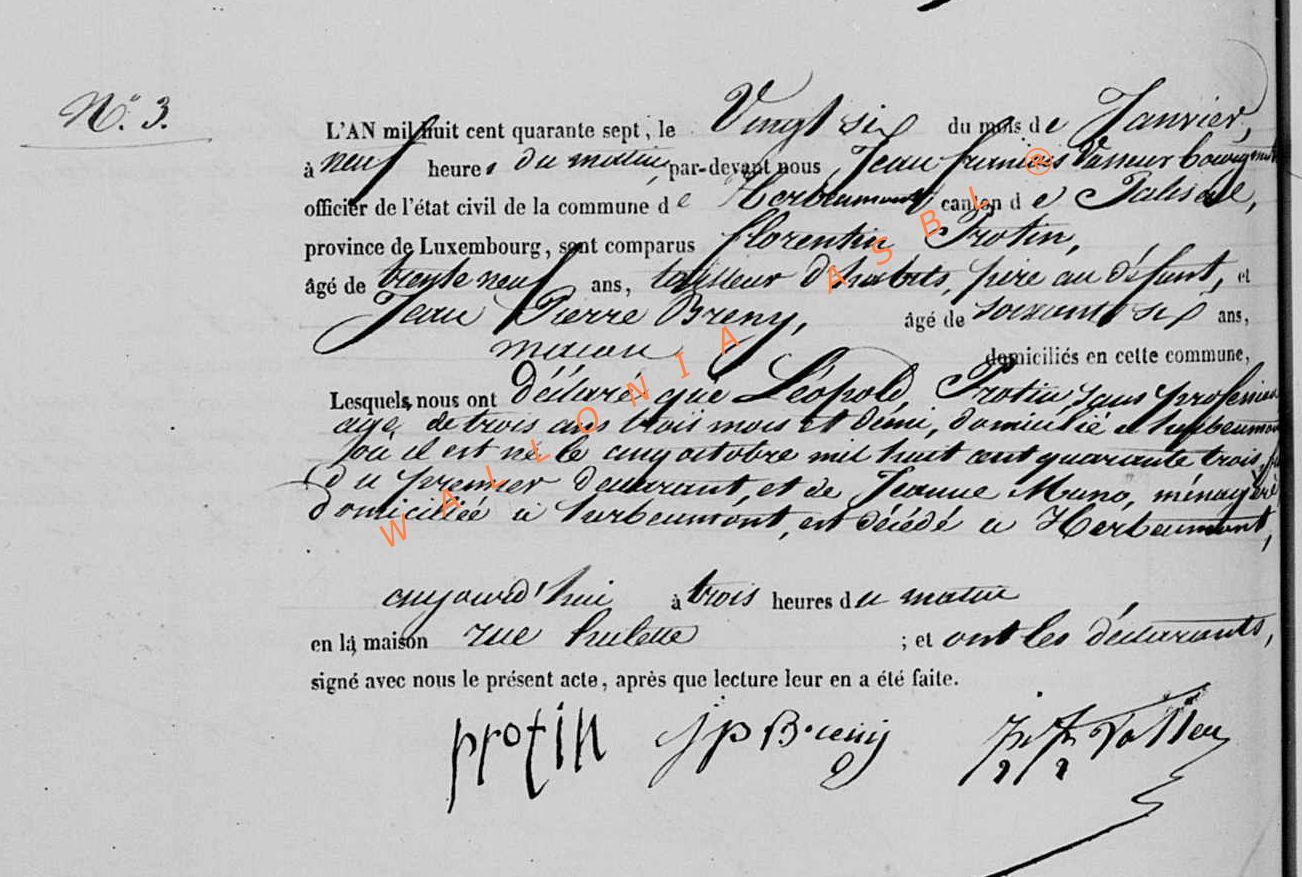 N.° 3.
L'AN mil huit cent quarante sept, le Vingt six du mois de Janvier,
à neuf heures du matin, par-devant nous, Jean françois Vasseur bourgmestre
officier de l'état civil de la commune de Herbeumont canton de Paliseul,
province de Luxembourg, sont comparus florentin Protin,
âgé de trente neuf ans, tailleur d'habits, père au défunt, et
Jean Pierre Breny, âgé de soixante six ans,
macon domiciliés en cette commune,
Lesquels, nous ont déclaré que Léopold Protin sans profession
agé de trois ans trois mois et demi, domicilié à herbeumont
où il est né le cinq octobre mil huit cent quarante trois, fils
du premier déclarant, et de Jeanne Muno, ménagère
domiciliée à herbeumont, est décédé à Herbeumont,
aujourd'hui à trois heures du matin
en la maison rue hulette ; et ont les déclarants,
signé avec nous le présent acte, après que lecture leur en a été faite.
protin J p Breny J. F. Vasseur
WALLONIA ASBL ®